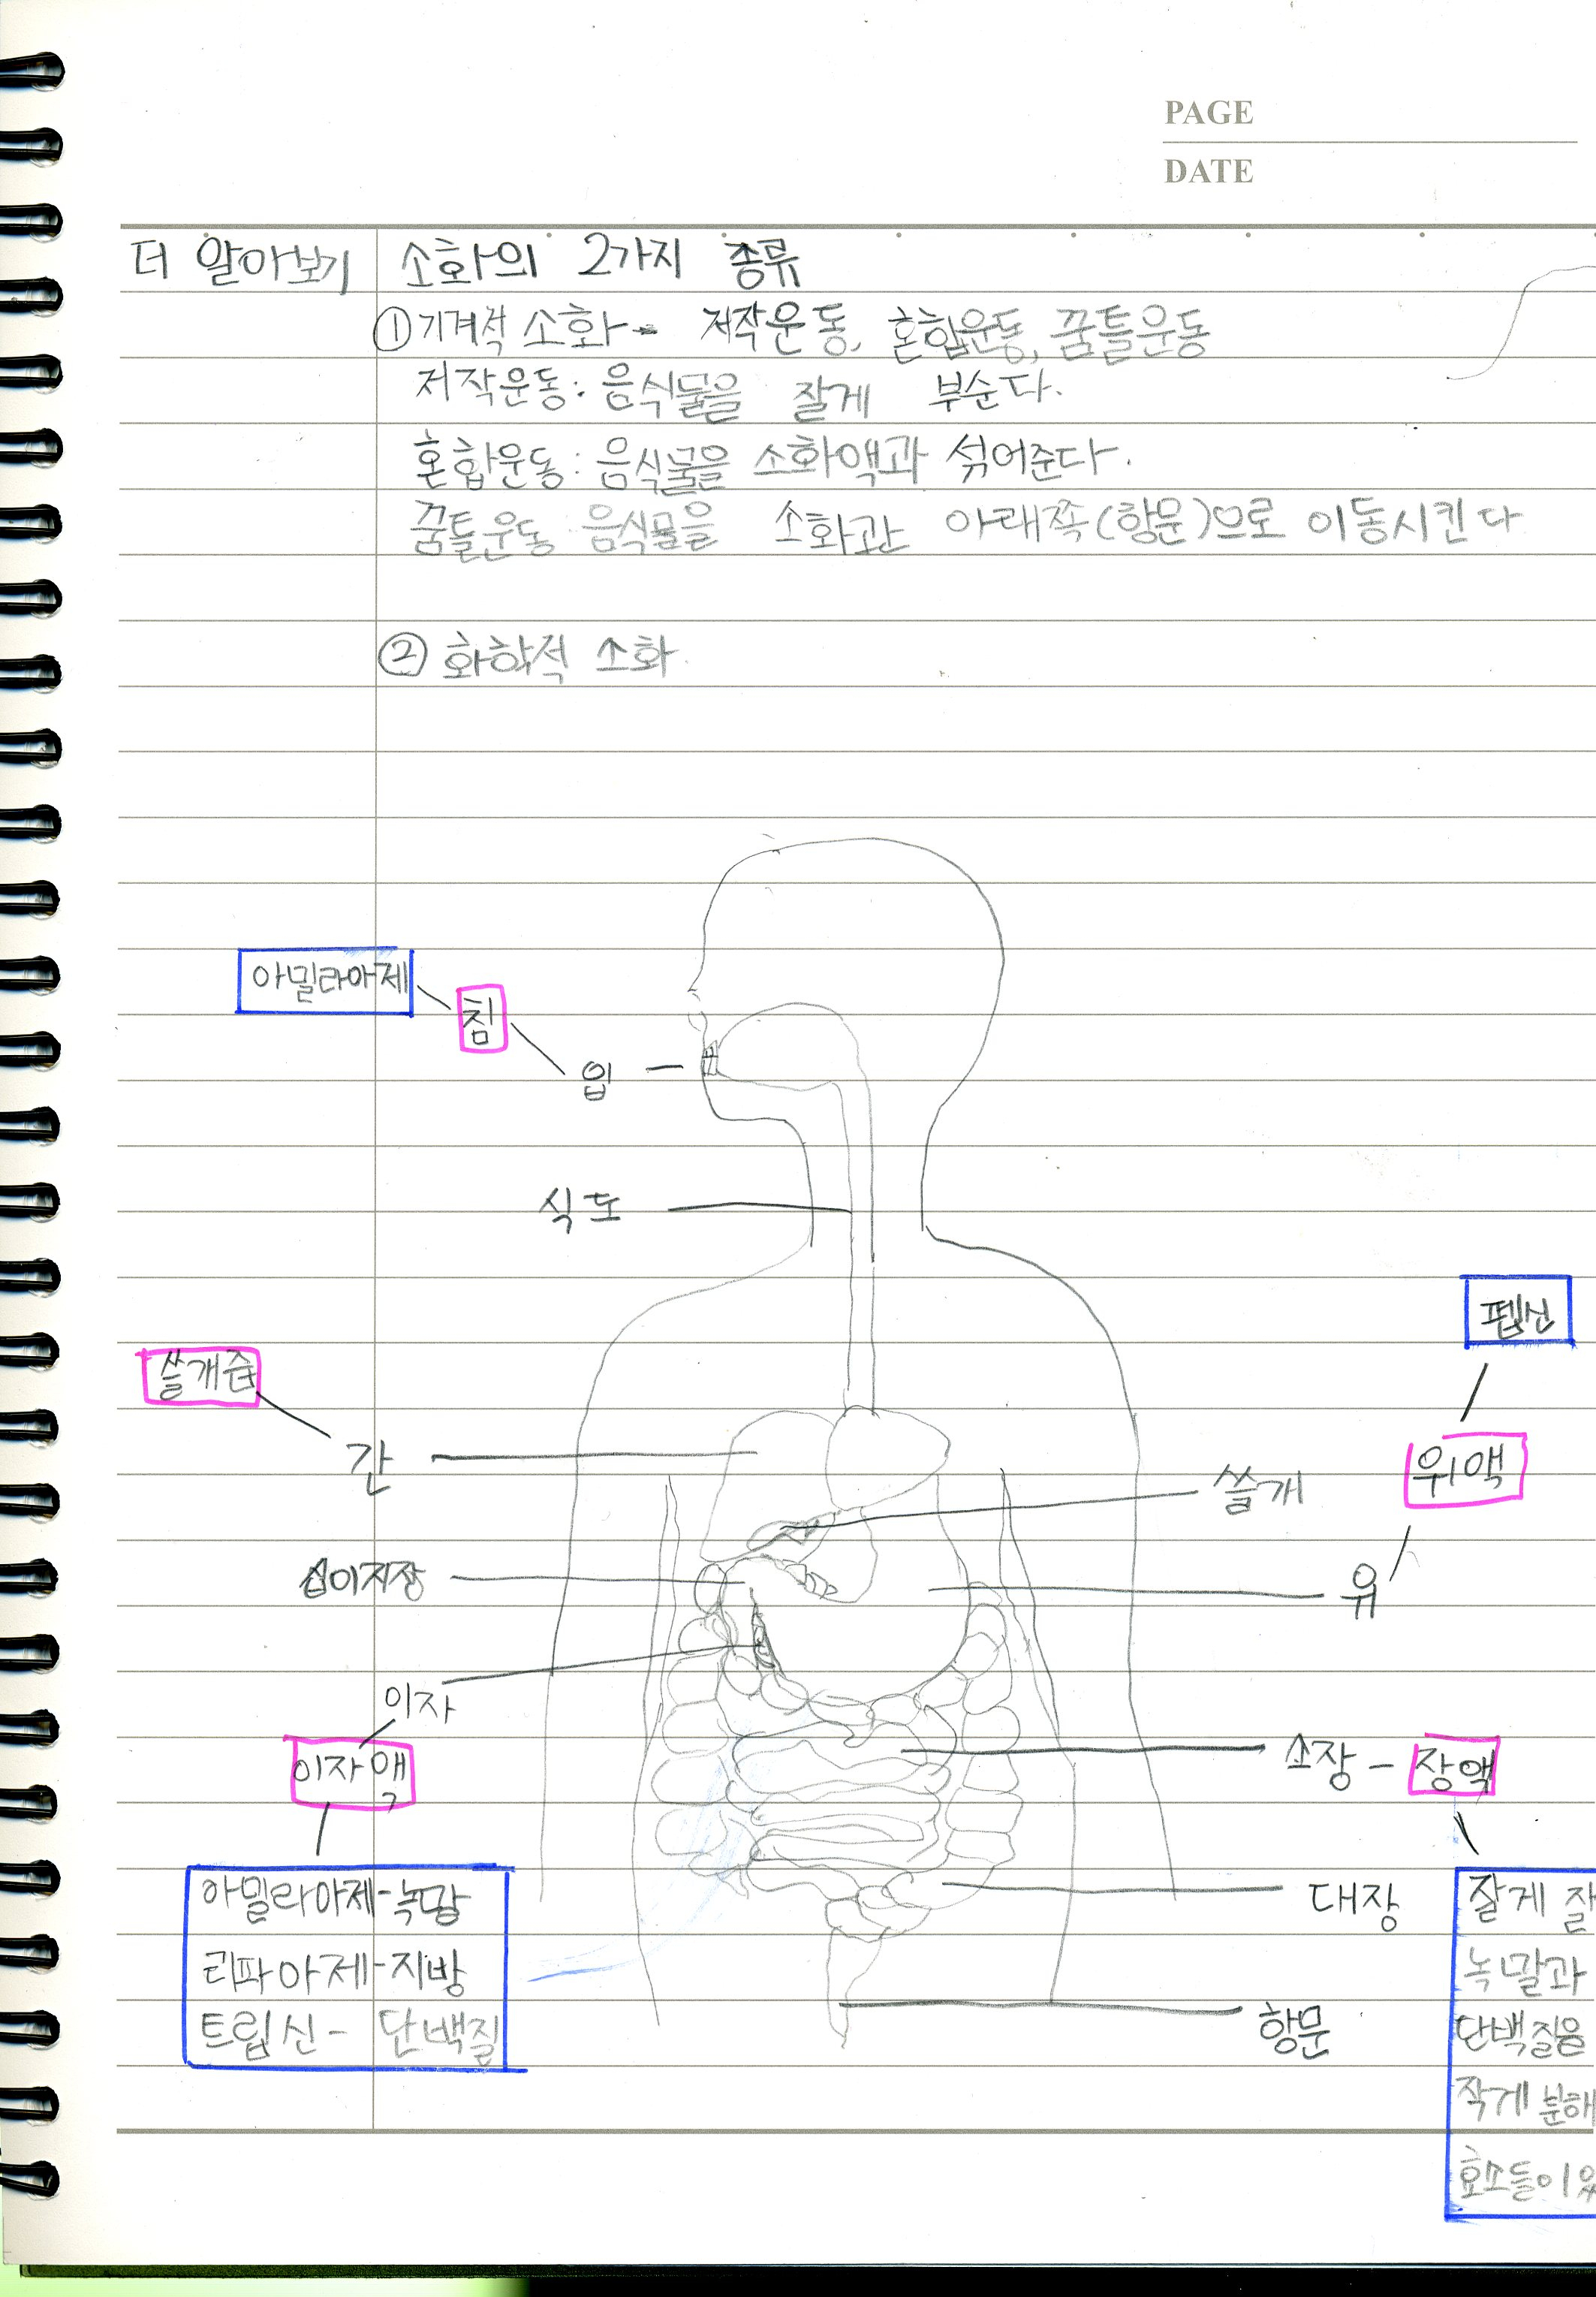 PAGE
DATE
더 알아보기
소화의 2가지 종류
① 기계적 소화 - 저작운동, 혼합운동, 꿈틀운동
저작운동: 음식물을 잘게 부순다.
혼합운동: 음식물을 소화액과 섞어준다.
꿈틀운동: 음식물을 소화관 아래쪽(항문)으로 이동시킨다
② 화학적 소화.
아밀라아제
침
입
식도
펩신
쓸개즙
간
위액
쓸개
십이지장
위
이자
이자액
소장 - 장액
아밀라아제-녹말
리파아제-지방
트립신- 단백질
대장
항문
잘게
녹말과
단백질을
작게 분해
효소들이